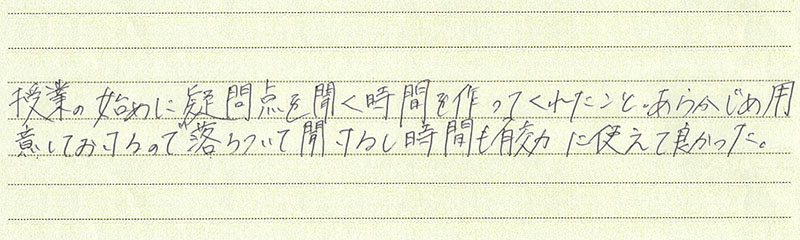 授業の始めに疑問点を聞く時間を作ってくれたこと。あらかじめ用
意しておけるので落ちついて聞けるし時間も有効に使えて良かった。